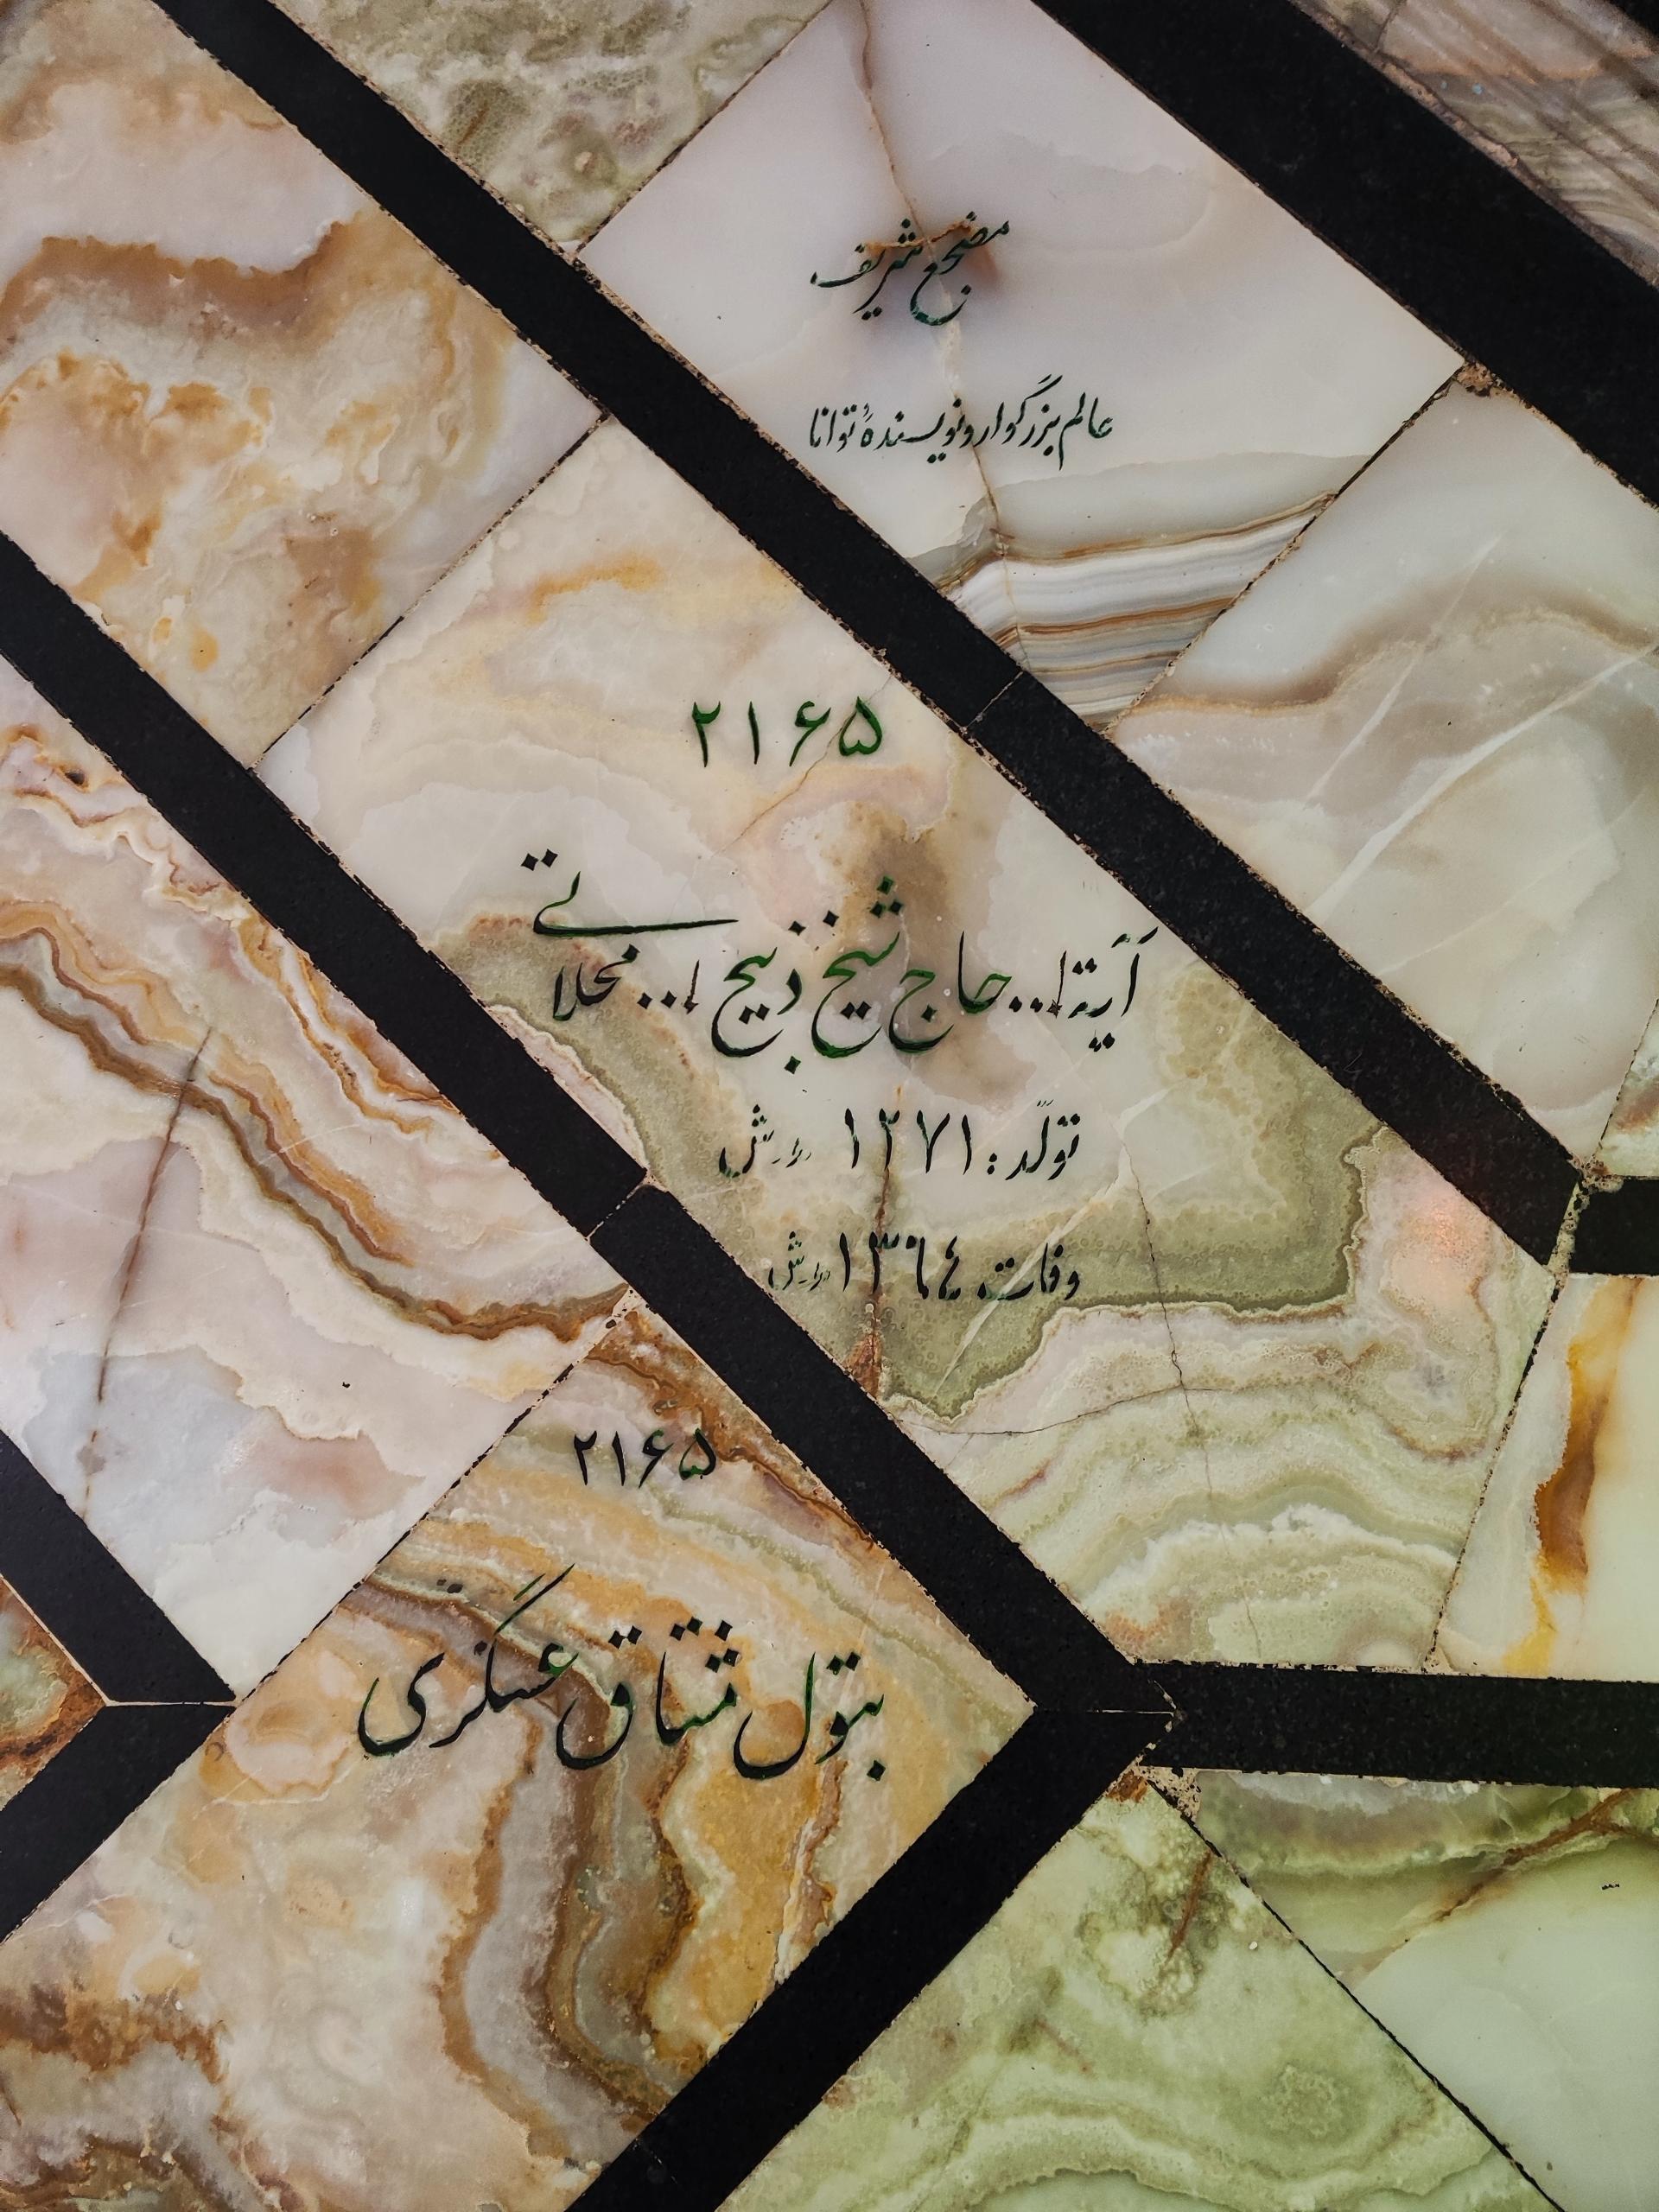 مضجع شریف
عالم بزرگوار و نویسندهٔ توانا
۲۱۶۵
آیة ا... حاج شیخ ذبیح ا... محلاتی
تولّد: ۱۲۷۱ ه‍.ش
وفات: ۱۳۶۴ ه‍.ش
۲۱۶۵
بتول مشتاق عسگری